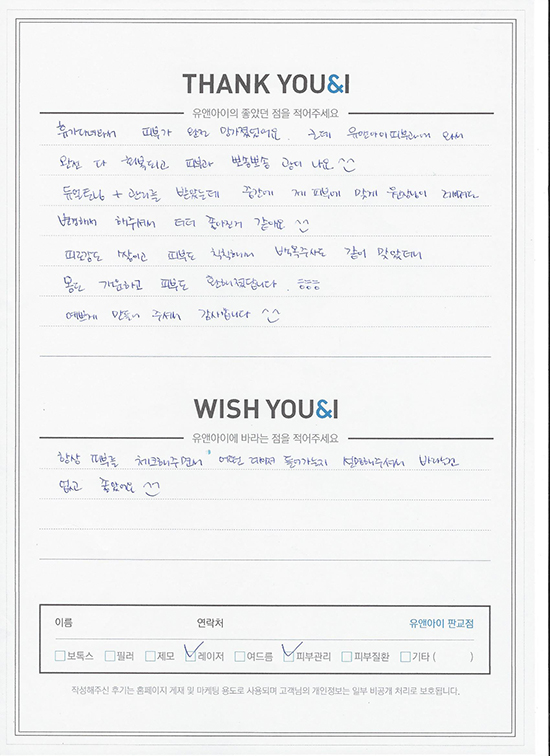 THANK YOU&I
유앤아이의 좋았던 점을 적어주세요
휴가다녀와서 피부가 완전 망가졌었어요. 근데 유앤아이피부과에 와서
완전 다 회복되고 피부과 뽀송뽀송 광이 나요 ^^
듀얼토닝 + 관리를 받았는데 중간에 제 피부에 맞게 원장님이 레이저도
변경해서 해주셔서 더더 좋아진거 같아요 ^^
피로감도 쌓이고 피부도 칙칙해서 백옥주사도 같이 맞았더니
몸도 가뿐하고 피부도 환해졌답니다.
예쁘게 만들어 주셔서 감사합니다 ^^
WISH YOU&I
유앤아이에 바라는 점을 적어주세요
항상 피부를 체크해주면서 어떤 레이저 들어가는지 설명해주셔서 바라는건
없고 좋았어요 ^^
이름 연락처 유앤아이 판교점
보톡스 필러 제모 레이저 여드름 피부관리 피부질환 기타 ( )
작성해주신 후기는 홈페이지 게재 및 마케팅 용도로 사용되며 고객님의 개인정보는 일부 비공개 처리로 보호됩니다.